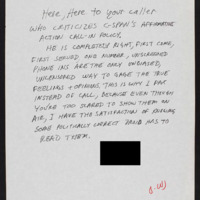 Here, Here to your caller
WHO CRITICIZES C-SPAN'S AFFIRMATIVE
ACTION CALL-IN POLICY.
HE IS COMPLETELY RIGHT, FIRST COME,
FIRST SERVED ONE NUMBER, UNSCREENED
PHONE INS ARE THE ONLY UNBIASED,
UNCENSORED WAY TO GAGE THE TRUE
FEELINGS & OPINIONS. THIS IS WHY I FAX
INSTEAD OF CALL, BECAUSE EVEN THOUGH
YOU'RE TOO SCARED TO SHOW THEM ON
AIR, I HAVE THE SATISFACTION OF KNOWING
SOME POLITICALLY CORRECT HAS TO
READ THEM.